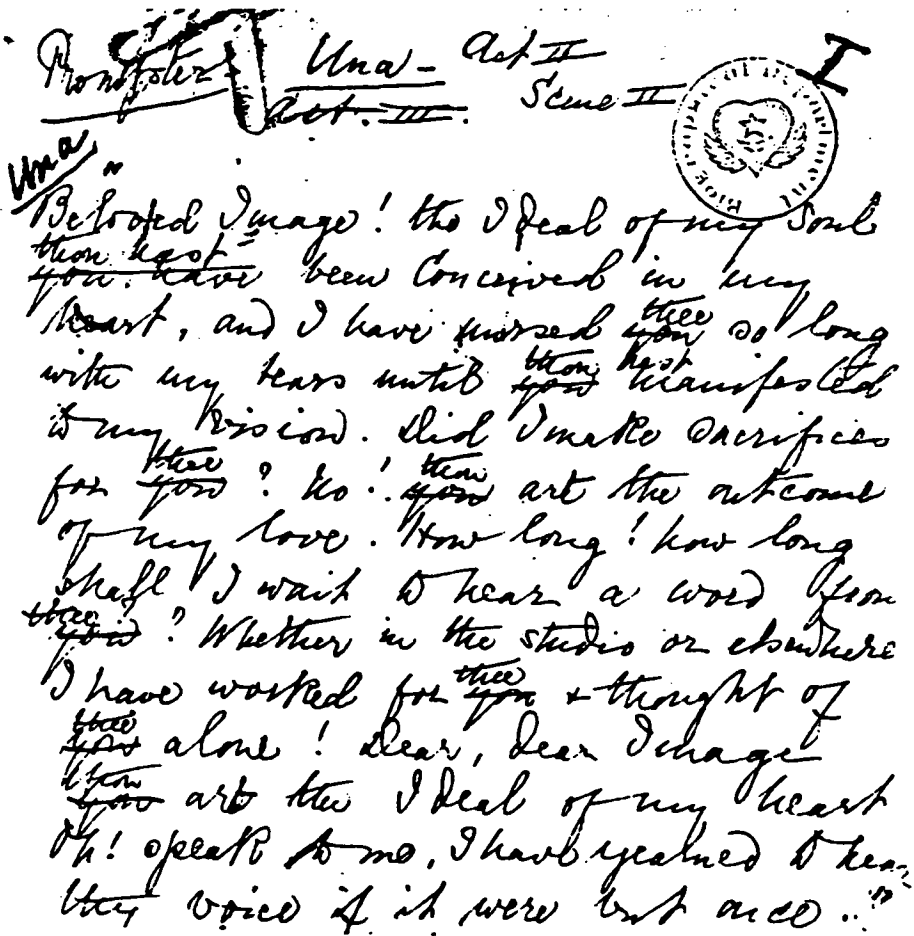 Prompter Una - Act II
Act. III. Scene II
I
Una
"Beloved Image! the Ideal of my Soul
thou hast
you have been Conceived in my
thee
heart, and I have nursed you so long
thou hast
with my tears until you manifested
to my vision. Did I make sacrifices
thee thou
for you? No! you art the outcome
of my love. How long! how long
shall I wait to hear a word from
thee?
you? Whether in the studio or elsewhere
thee
I have worked for you & thought of
thee
you alone! Dear, dear Image
thou
you art the Ideal of my heart
Oh! speak to me, I have yearned to hear
thy voice if it were but once.."